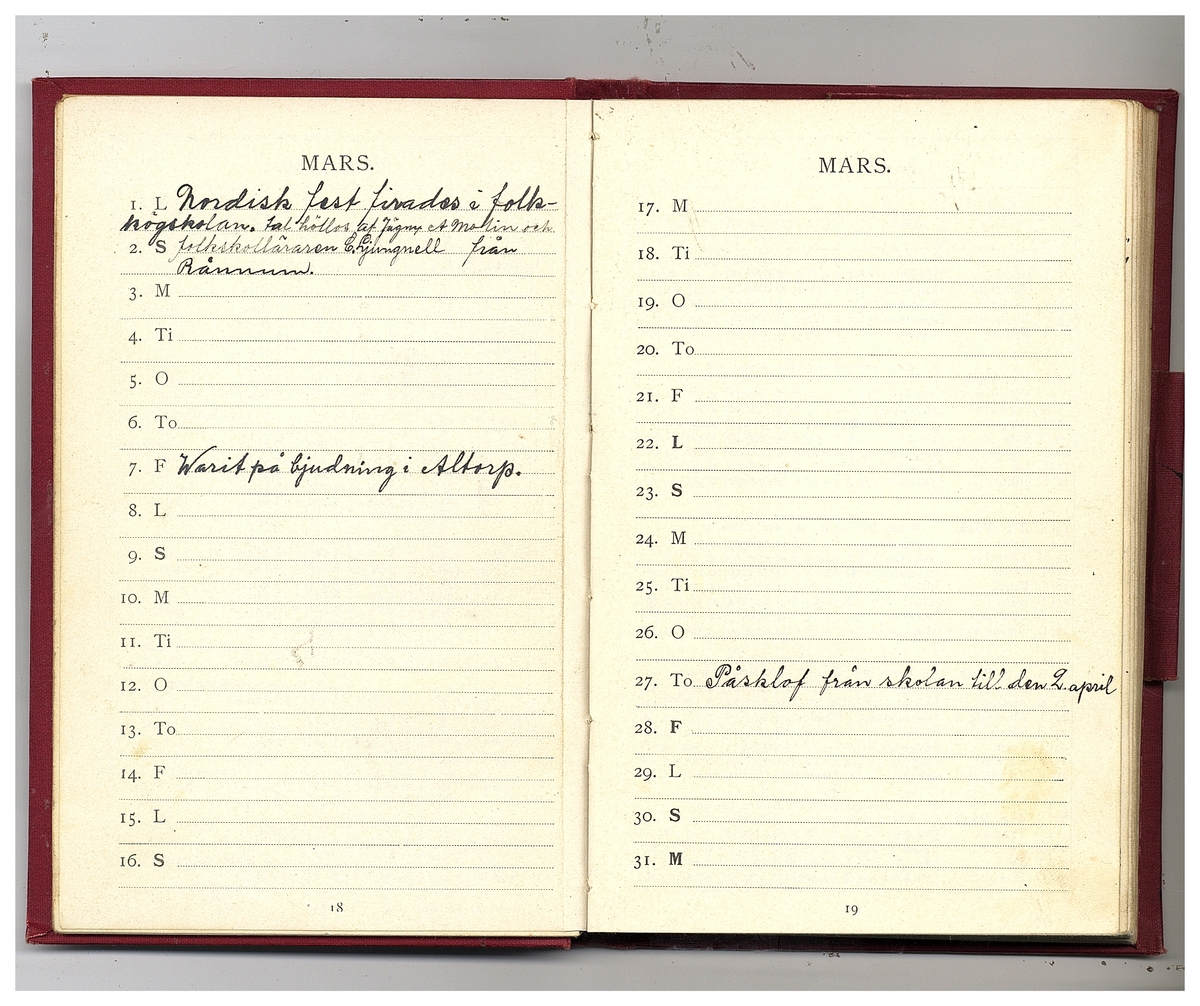 MARS.
1. L Nordisk fest firades i folk-
högskolan. Tal höllos af Jägm A Molin och
2. S folkskolläraren C. Ljungnell från
Rånnum.
3. M
4. Ti
5. O
6. To
7. F Warit på bjudning i Altorp.
8. L
9. S
10. M
11. Ti
12. O
13. To
14. F
15. L
16. S
18
MARS.
17. M
18. Ti
19. O
20. To
21. F
22. L
23. S
24. M
25. Ti
26. O
27. To Påsklof från skolan till den 2 april
28. F
29. L
30. S
31. M
19